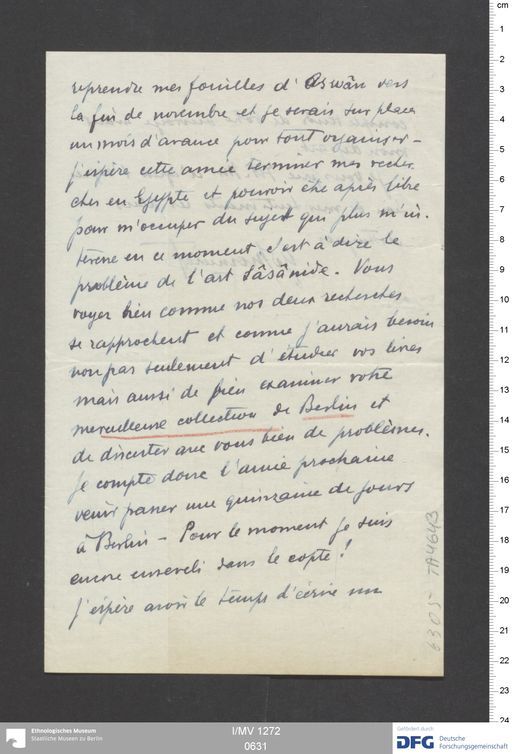 reprendre mes fouilles d'Aswân vers
la fin de novembre et je serais sur place
un mois d'avance pour tout organiser –
J'espère cette année terminer mes recher
ches en Egypte et pouvoir être après libre
pour m'occuper du sujet qui plus m'in-
téresse en ce moment c'est à dire le
problème de l'art sâsânide. Vous
voyez bien comme nos deux recherches
se rapprochent et comme j'aurais besoin
non pas seulement d'étudier vos livres
mais aussi de bien examiner votre
merveilleuse collection de Berlin et
de discuter avec vous bien de problèmes.
Je compte donc l'année prochaine
venir passer une quinzaine de jours
à Berlin – Pour le moment je suis
encore enseveli dans le copte!
J'espère avoir le temps d'écrire un
6305 TA4643
cm
1
2
3
4
5
6
7
8
9
10
11
12
13
14
15
16
17
18
19
20
21
22
23
24
Ethnologisches Museum
Staatliche Museen zu Berlin
I/MV 1272
0631
Gefördert durch
DFG Deutsche
Forschungsgemeinschaft